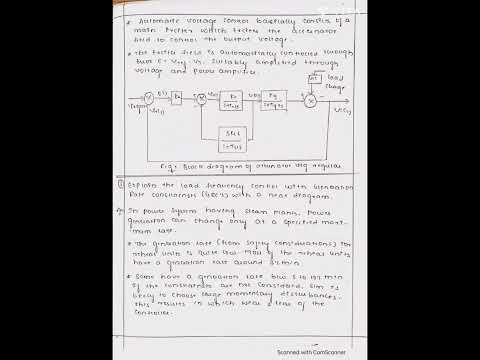 * Automatic voltage control basically consists of a
main exciter which excites the alternator
field to control the output voltage.
* The exciter field is automatically controlled through
error e = Vref - VT. Suitably amplified through
voltage and power amplifier.
load
change
Ka
Ke
1+Tes
Kg
1+Tgs
Fig: Block diagram of alternator vtg regulator
① Explain the load frequency control with Generation
Rate constraints (GRC's) with a neat diagram.
In power system having steam plants, power
generation can change only at a specified maxi-
mum rate.
* The generation rate (from safety considerations) for
reheat units is quite low. Most of the reheat units
have a generation rate around 3%/min
* Some have a generation rate b/w 5 to 10%/min
If the constraints are not considered, system is
likely to chase large momentary disturbances.
This results in undue wear & tear of the
controller.
Scanned with CamScanner